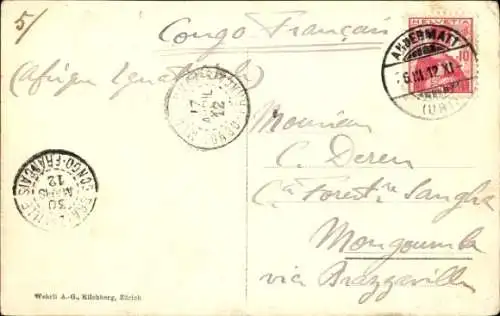 5/
Congo Français
(Afrique
HELVETIA
10
ANDERMATT
6.III.12.XI
(URI)
17
AVRIL
12
Monsieur
C. Deren
Cie Forestière Sangha
Mongoumba
via Brazzaville
BRAZZAVILLE
CONGO-FRANCAIS
30
MARS
12
Wehrli A.-G., Kilchberg, Zürich